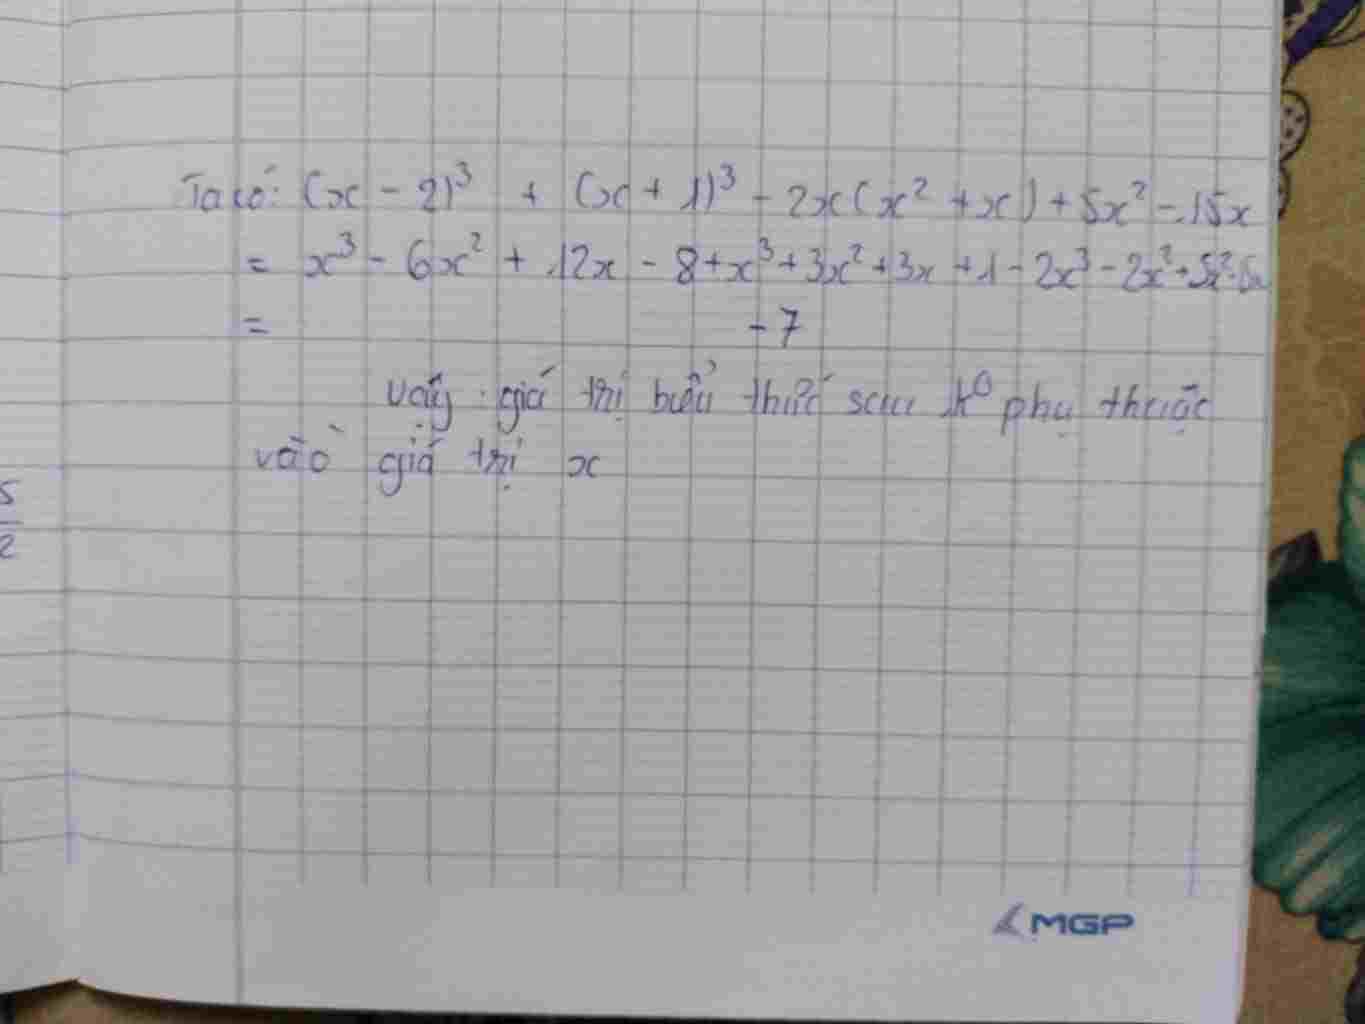 Ta có: (x - 2)³ + (x + 1)³ - 2x(x² + x) + 5x² - 15x
= x³ - 6x² + 12x - 8 + x³ + 3x² + 3x + 1 - 2x³ - 2x² + 5x² - 15x
= - 7
Vậy giá trị biểu thức sau k⁰ phụ thuộc
vào giá trị x
5
2
MGP